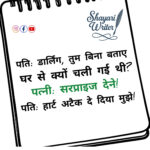 Shayari
Writer
पतिः डार्लिंग, तुम बिना बताए
घर से क्यों चली गई थी?
पत्नीः सरप्राइज देने!
पतिः हार्ट अटैक दे दिया मुझे!